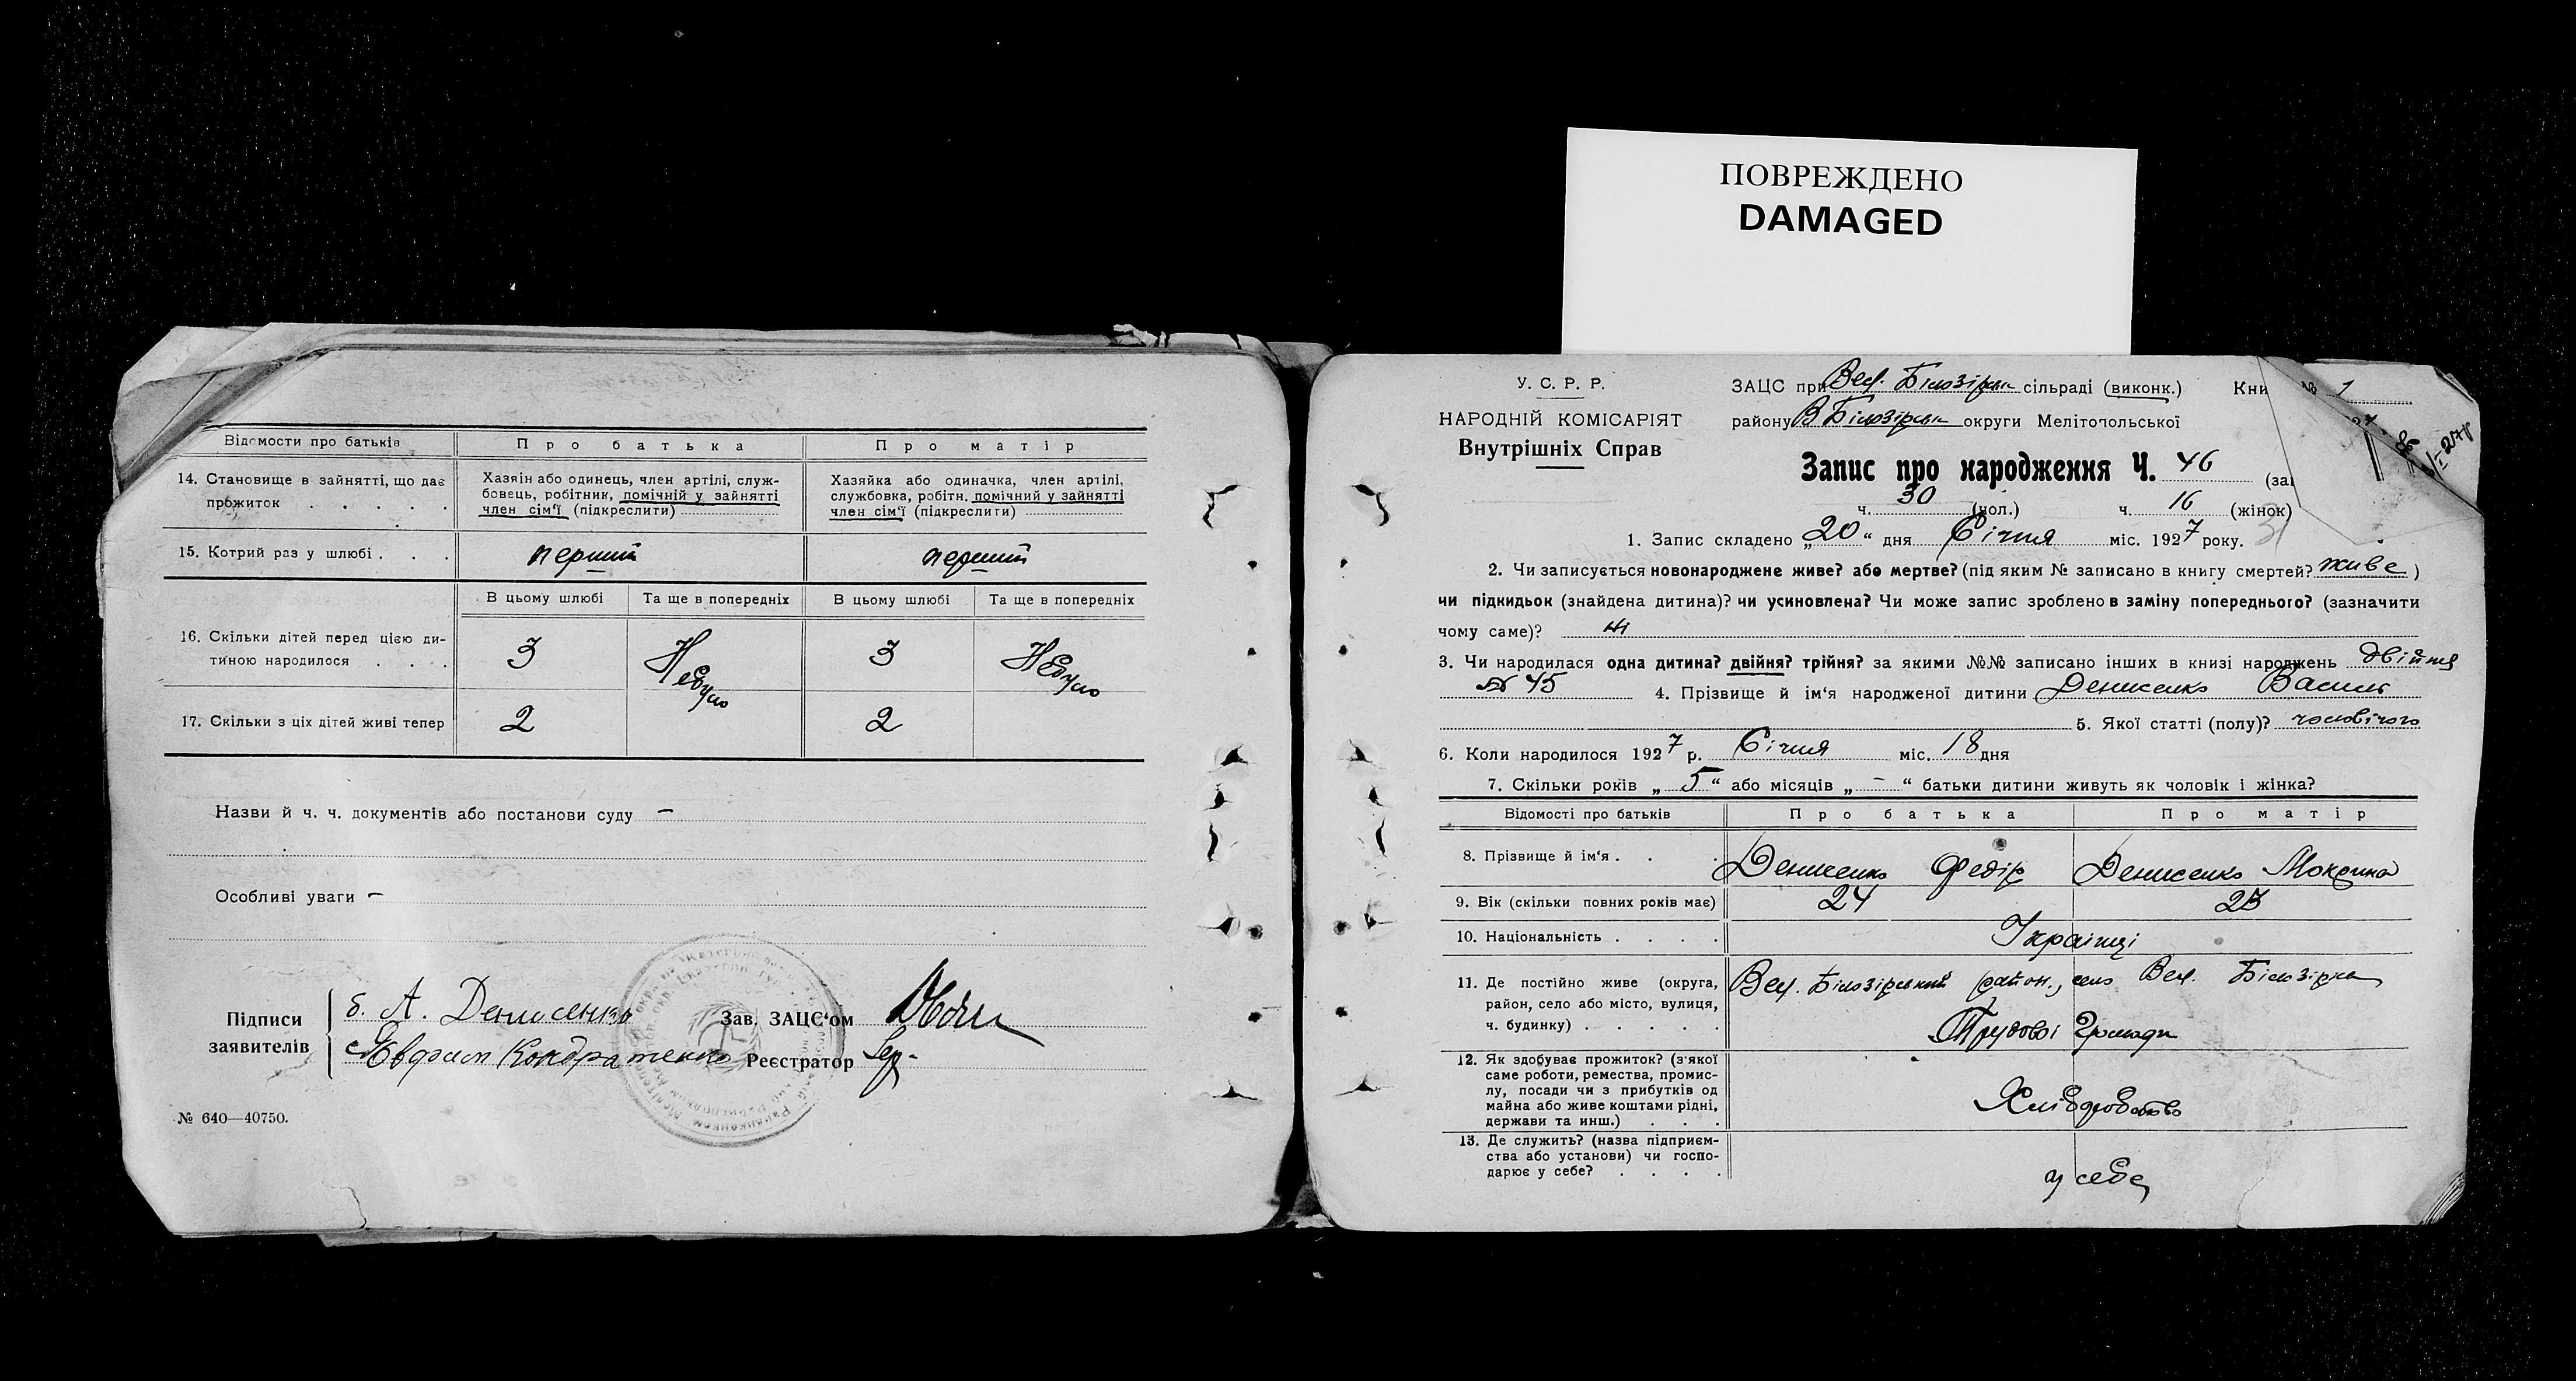 ПОВРЕЖДЕНО
DAMAGED
Відомости про батьків
Про батька
Про матір
14. Становище в зайнятті, що дає прожиток . . . . .
Хазяін або одинець, член артілі, служ-
бовець, робітник, помічній у зайнятті
член сім'ї (підкреслити)
Хазяйка або одиначка, член артілі,
службовка, робітн. помічний у зайнятті
член сім'ї (підкреслити)
15. Котрий раз у шлюбі . . .
перший
перший
В цьому шлюбі
Та ще в попередніх
В цьому шлюбі
Та ще в попередніх
16. Скільки дітей перед цією ди-
тиною народилося . . .
3
Не було
3
Не було
17. Скільки з ціх дітей живі тепер
2
2
Назви й ч. ч. документів або постанови суду —
Особливі уваги —
Підписи
заявителів
б. А. Денисенко
Евдоким Кондратенко
Зав. ЗАЦС'ом
Реєстратор
№ 640—40750.
У. С. Р. Р.
НАРОДНІЙ КОМІСАРІЯТ
Внутрішніх Справ
ЗАЦС при Вел. Білозірськ сільраді (виконк.)
Кни № 1
району В Білозірськ округи Мелітопольської
Запис про народження Ч. 46
ч. 30 (чол.) ч. 16 (жінок)
1. Запис складено „20“ дня Січня міс. 1927 року.
2. Чи записується новонароджене живе? або мертве? (під яким № записано в книгу смертей? живе )
чи підкидьок (знайдена дитина)? чи усиновлена? Чи може запис зроблено в заміну попереднього? (зазначити
чому саме)? ні
3. Чи народилася одна дитина? двійня? трійня? за якими №№ записано інших в книзі народжень двійня
№ 45 4. Прізвище й ім'я народженої дитини Денисенко Василь
5. Якої статті (полу)? чоловічого
6. Коли народилося 1927 р. Січня міс. 18 дня
7. Скільки років „5“ або місяців „—“ батьки дитини живуть як чоловік і жінка?
Відомості про батьків
Про батька
Про матір
8. Прізвище й ім'я . . .
Денисенко Федір
Денисенко Мокрина
9. Вік (скільки повних років має)
24
23
10. Національність . . . .
Українці
11. Де постійно живе (округа,
район, село або місто, вулиця,
ч. будинку) . . . . .
Вел. Білозірський район, село Вел. Білозірка
Трудові Громади
12. Як здобуває прожиток? (з'якої
саме роботи, ремества, промис-
лу, посади чи з прибутків од
майна або живе коштами рідні,
держави та инш.) . . .
Хліборобство
13. Де служить? (назва підприєм-
ства або установи) чи госпо-
дарює у себе? . . . .
у себе